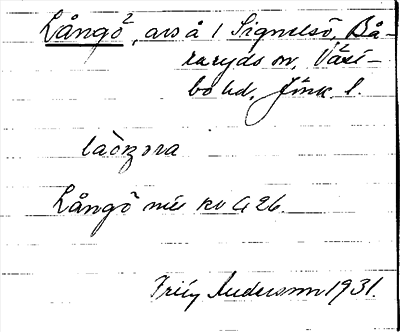 Långö², avs å 1 Signelsö, Bå-
raryds sn, Väst-
bo hd, Jönk. l.
Långö
Långö nu kv G 26.
Andersson 1931.